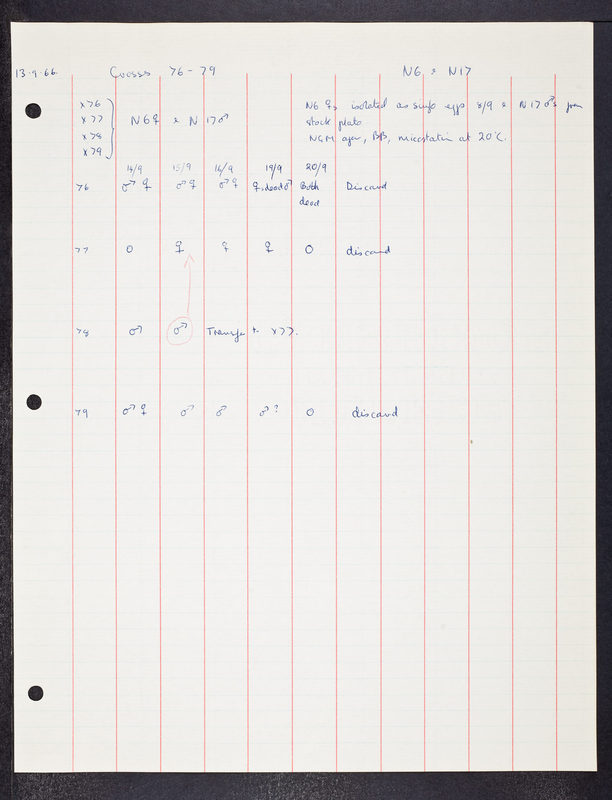 13.9.66. Crosses 76-79 N6 & N17
x76
x77
x78
x79
N6♀ & N17♂
N6 ♀s isolated as single eggs 8/9 & N17♂s from
stock plate
NGM agar, BB, micostatin at 20°C.
14/9 15/9 16/9 19/9 20/9
76 ♂ ♀ ♂ ♀ ♂ ♀ ♀, dead ♂ Both Discard
dead
77 O ♀ ♀ ♀ O discard
78 ♂ ♂ Transfer to x77.
79 ♂ ♀ ♂ ♂ ♂? O discard